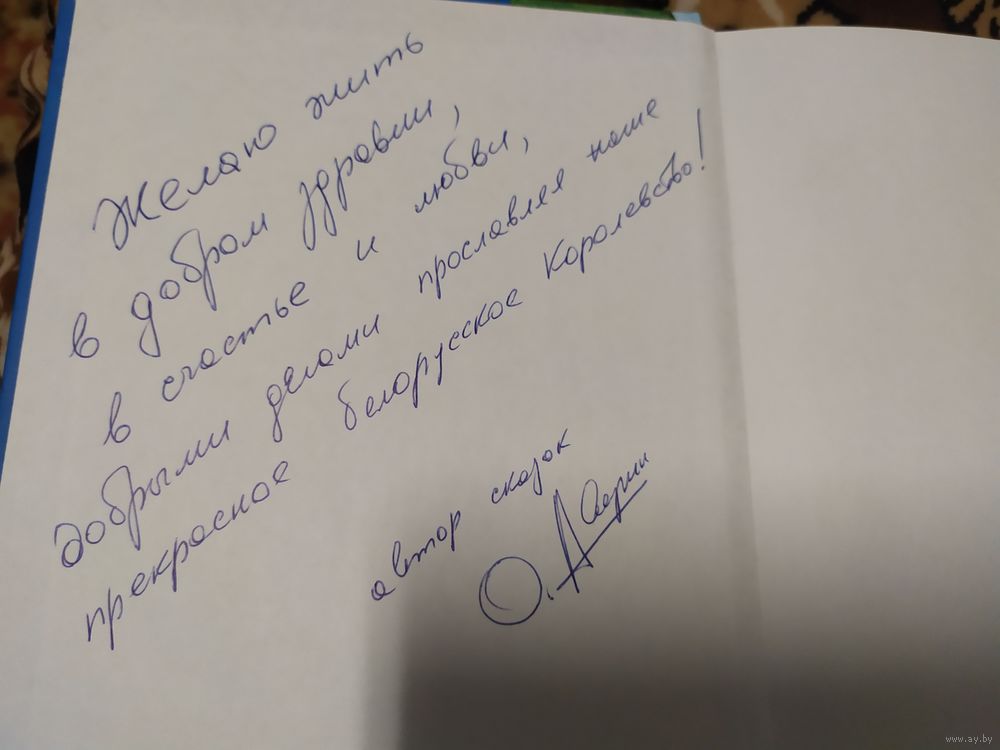 Желаю жить
в добром здравии,
в счастье и любви,
добрыми делами прославляя наше
прекрасное белорусское Королевство!
автор сказок
О.
www.ay.by